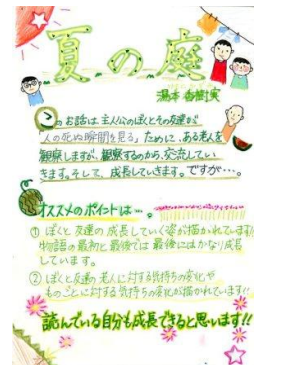 夏の庭
湯本 香樹実
このお話は主人公のぼくとその友達が
「人の死ぬ瞬間を見る」ために、ある老人を
観察しますが、観察するのから、交流してい
きます。そして、成長していきます。ですが…。
オススメのポイントは…。
① ぼくと友達の成長していく姿が描かれています!!
物語の最初と最後では最後にはかなり成長
しています。
② ぼくと友達の老人に対する気持ちの変化や
ものごとに対する気持ちの変化が描かれています!!
読んでいる自分も成長できると思います!!